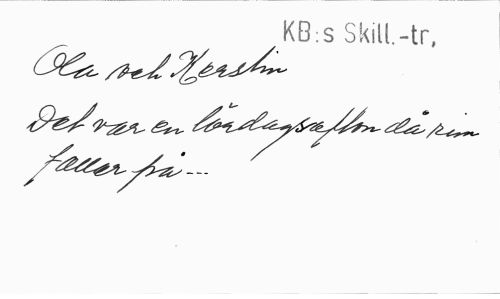 KB:s Skill.-tr,
Ola och Kerstin
Det var en lördagsafton då rim
faller på ---